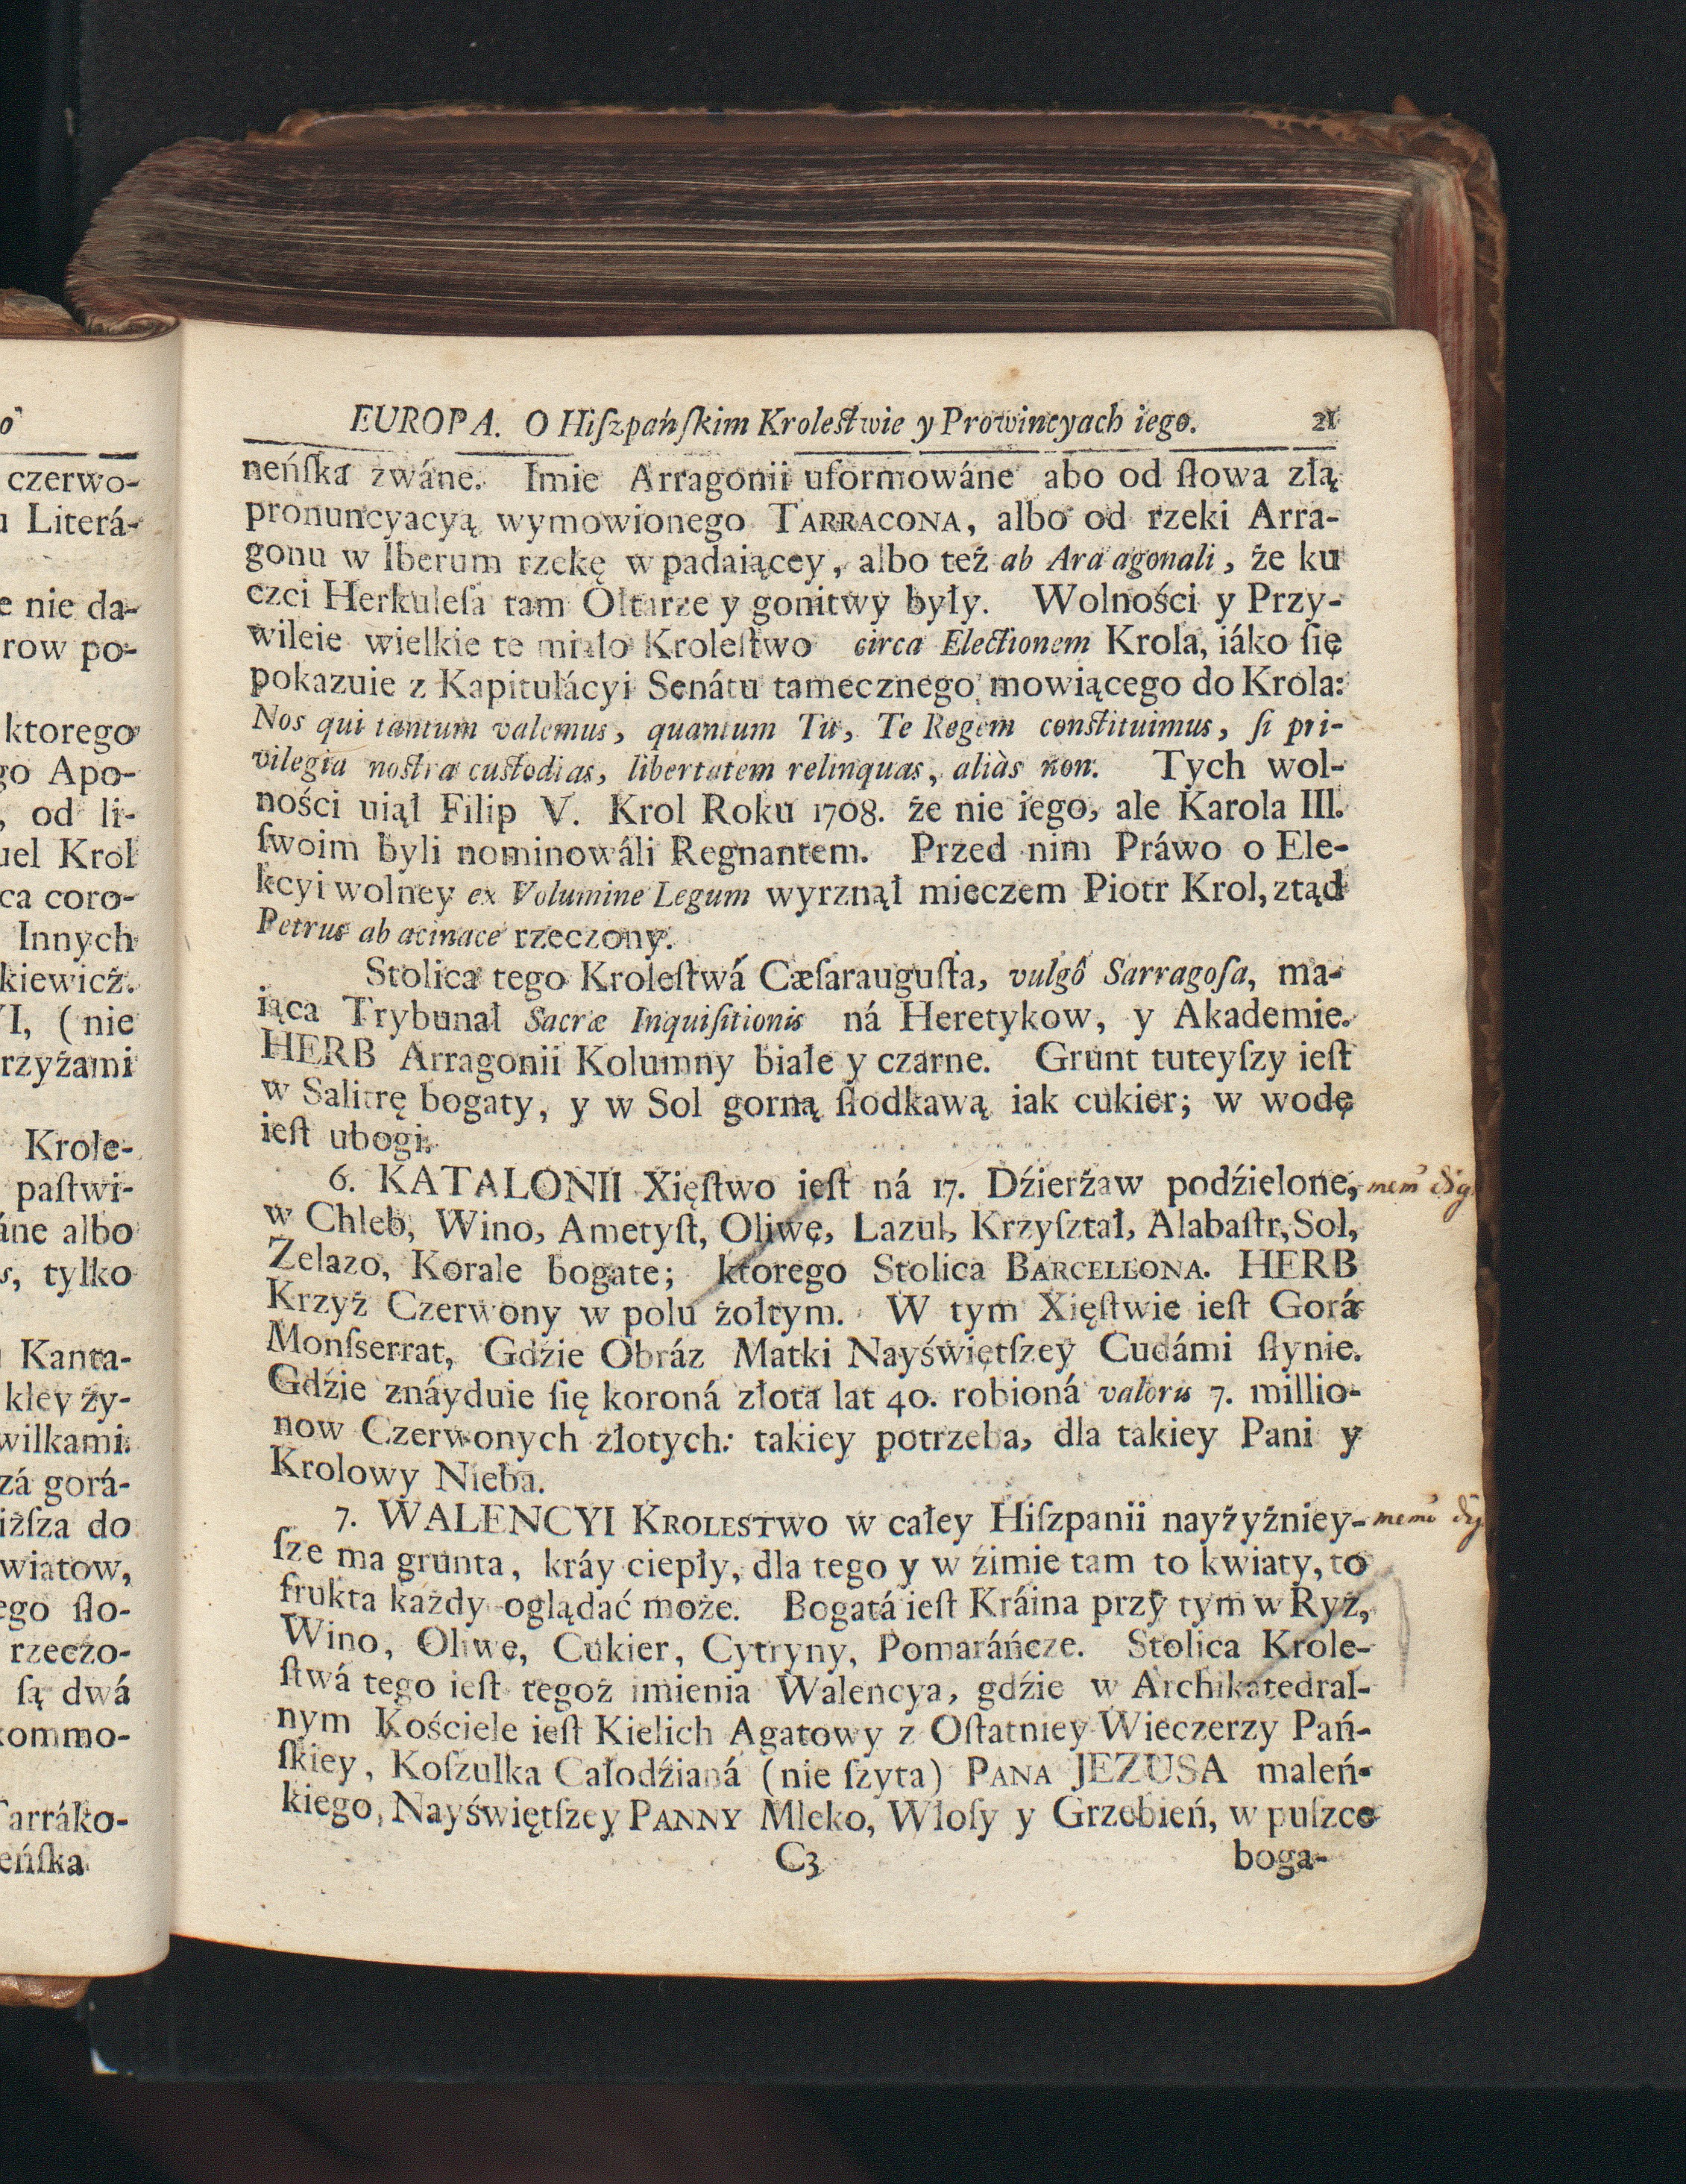 EUROPA. O Hiſzpańſkim Kroleſtwie y Prowincyach iego. 21
neńſka zwáne. Imie Arragonii uformowáne abo od ſłowa złą
pronuncyacyą wymowionego TARRACONA, albo od rzeki Arra-
gonu w Iberum rzekę wpadaiącey, albo też ab Ara agonali, że ku
czci Herkuleſa tam Ołtarze y gonitwy były. Wolności y Przy-
wileie wielkie te miało Kroleſtwo circa Electionem Krola, iáko ſię
pokazuie z Kapitulácyi Senátu tamecznego mowiącego do Krola:
Nos qui tantum valemus, quantum Tu, Te Regem conſtituimus, ſi pri-
vilegia noſtra cuſtodias, libertatem relinquas, aliàs non. Tych wol-
ności uiął Filip V. Krol Roku 1708. że nie iego, ale Karola III.
ſwoim byli nominowáli Regnantem. Przed nim Práwo o Ele-
kcyi wolney ex Volumine Legum wyrznął mieczem Piotr Krol, ztąd
Petrus ab acinace rzeczony.
Stolica tego Kroleſtwá Cæſarauguſta, vulgô Sarragoſa, ma-
iąca Trybunał Sacræ Inquiſitionis ná Heretykow, y Akademie.
HERB Arragonii Kolumny białe y czarne. Grunt tuteyſzy ieſt
w Salitrę bogaty, y w Sol gorną ſłodkawą iak cukier; w wodę
ieſt ubogi.
6. KATALONII Xięſtwo ieſt ná 17. Dźierżaw podźielone,
w Chleb, Wino, Ametyſt, Oliwę, Lazul, Krzyſztał, Alabaſtr, Sol,
Zelazo, Korale bogate; ktorego Stolica BARCELLONA. HERB
Krzyż Czerwony w polu żołtym. W tym Xięſtwie ieſt Gorá
Monſserrat, Gdźie Obráz Matki Nayświętſzey Cudámi ſłynie.
Gdźie znáyduie ſię koroná złota lat 40. robioná valoris 7. millio-
now Czerwonych złotych: takiey potrzeba, dla takiey Pani y
Krolowy Nieba.
7. WALENCYI KROLESTWO w całey Hiſzpanii nayżyźniey-
ſze ma grunta, kráy ciepły, dla tego y w źimie tam to kwiaty, to
frukta każdy oglądać może. Bogatá ieſt Kráina przy tym w Ryż,
Wino, Oliwę, Cukier, Cytryny, Pomaráńcze. Stolica Krole-
ſtwá tego ieſt tegoż imienia Walencya, gdźie w Archikatedral-
nym Kościele ieſt Kielich Agatowy z Oſtatniey Wieczerzy Pań-
ſkiey, Koſzulka Całodźianá (nie ſzyta) PANA JEZUSA maleń-
kiego, Nayświętſzey PANNY Mleko, Włoſy y Grzebień, w puſzce
C3 boga-
czerwo-
Literá-
nie da-
row po-
ktorego
go Apo-
od li-
uel Krol
ca coro-
Innych
kiewicż.
VI, (nie
rzyżami
Krole-
paſtwi-
áne albo
s, tylko
Kanta-
kley ży-
wilkami.
zá gorá-
iżſza do
wiatow,
ego ſło-
rzeczo-
ſą dwá
kommo-
Tarráko-
eńſka